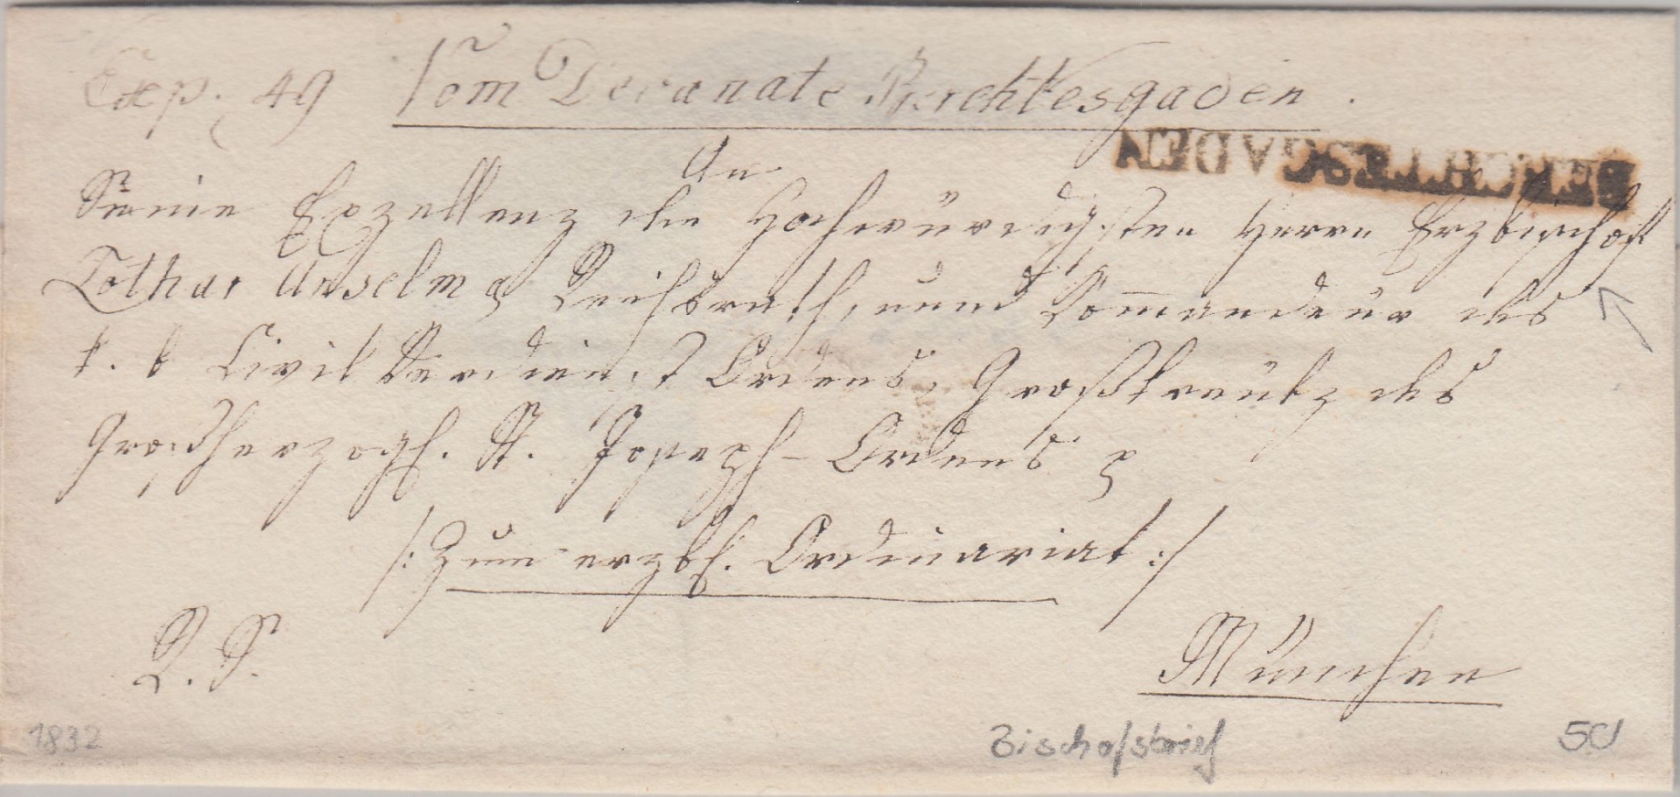 Exp. 49 Vom Decanate Berchtesgaden.
BERCHTESGADEN
An
Seine Exzellenz den Hochwürdigsten Herrn Erzbischof
Lothar Anselm Reichsrath, und Kom̅andeur des
k. b Civil Verdienst Ordens, Großkreutz des
Großherzogl. St. Joseph-Ordens
/: Zum erzbf. Ordinariat :/
R. S.
München
1832
Bischofsbrief
50